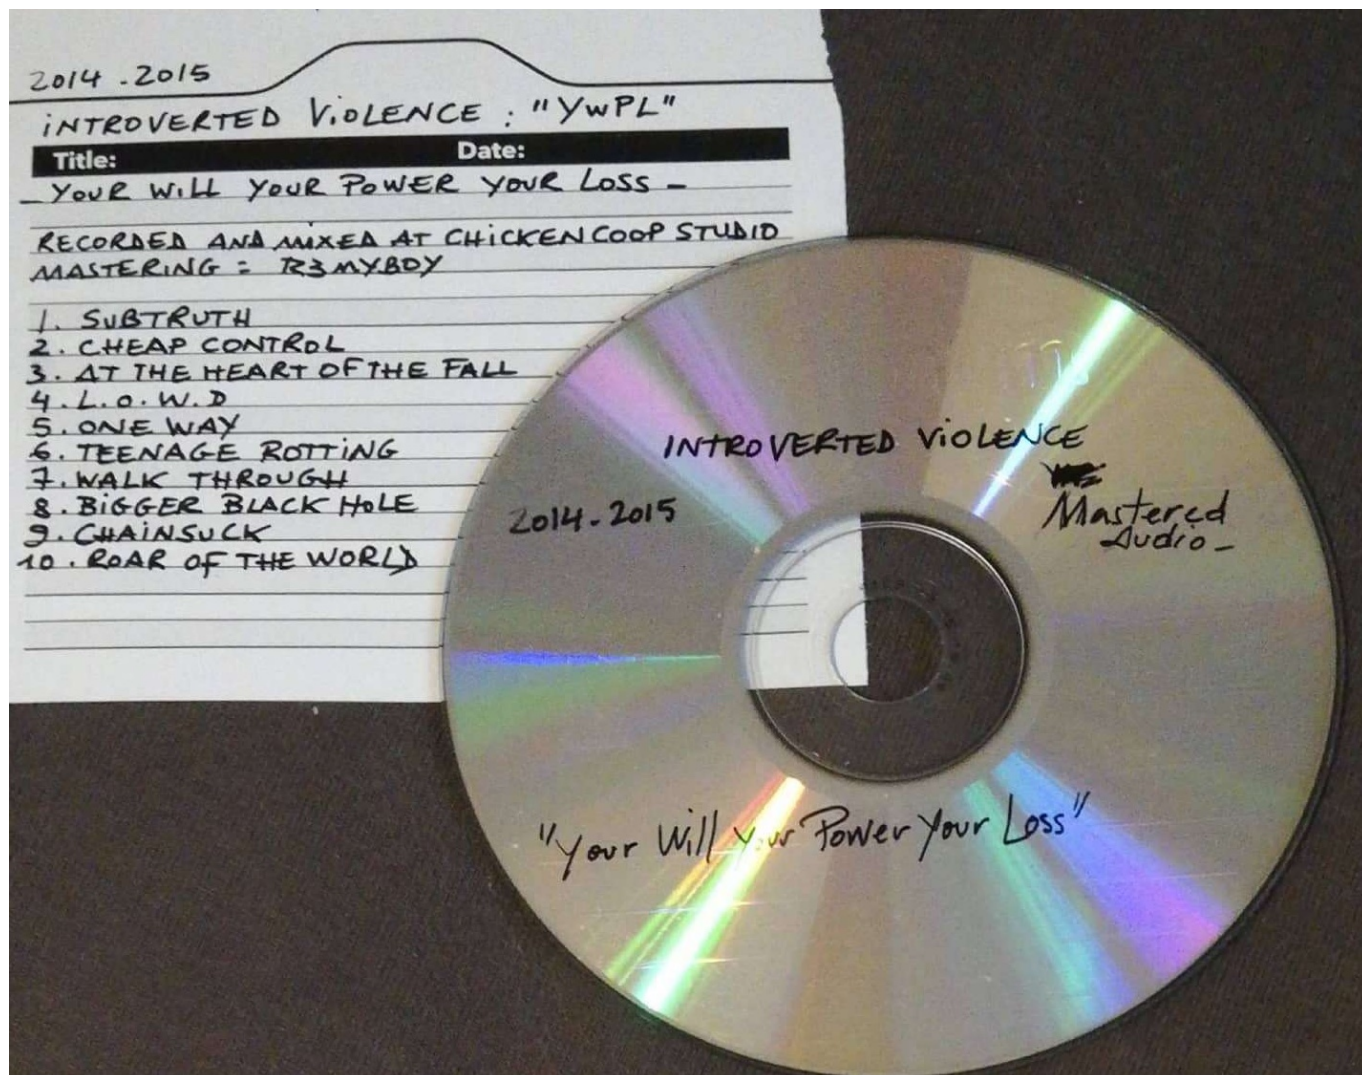 2014 - 2015
iNTROVERTED ViOLENCE : "YWPL"
Title: Date:
- YOUR WiLL YOUR POWER YOUR LOSS -
RECORDED AND MiXED AT CHiCKENCOOP STUDIO
MASTERiNG = R3MYBOY
1. SUBTRUTH
2. CHEAP CONTROL
3. AT THE HEART OF THE FALL
4. L.O.W.D
5. ONE WAY
6. TEENAGE ROTTiNG
7. WALK THROUGH
8. BiGGER BLACK HOLE
9. CHAiNSUCK
10. ROAR OF THE WORLD
INTROVERTED ViOLENCE
2014 - 2015
Mastered
Audio -
"Your Will Your Power Your Loss"